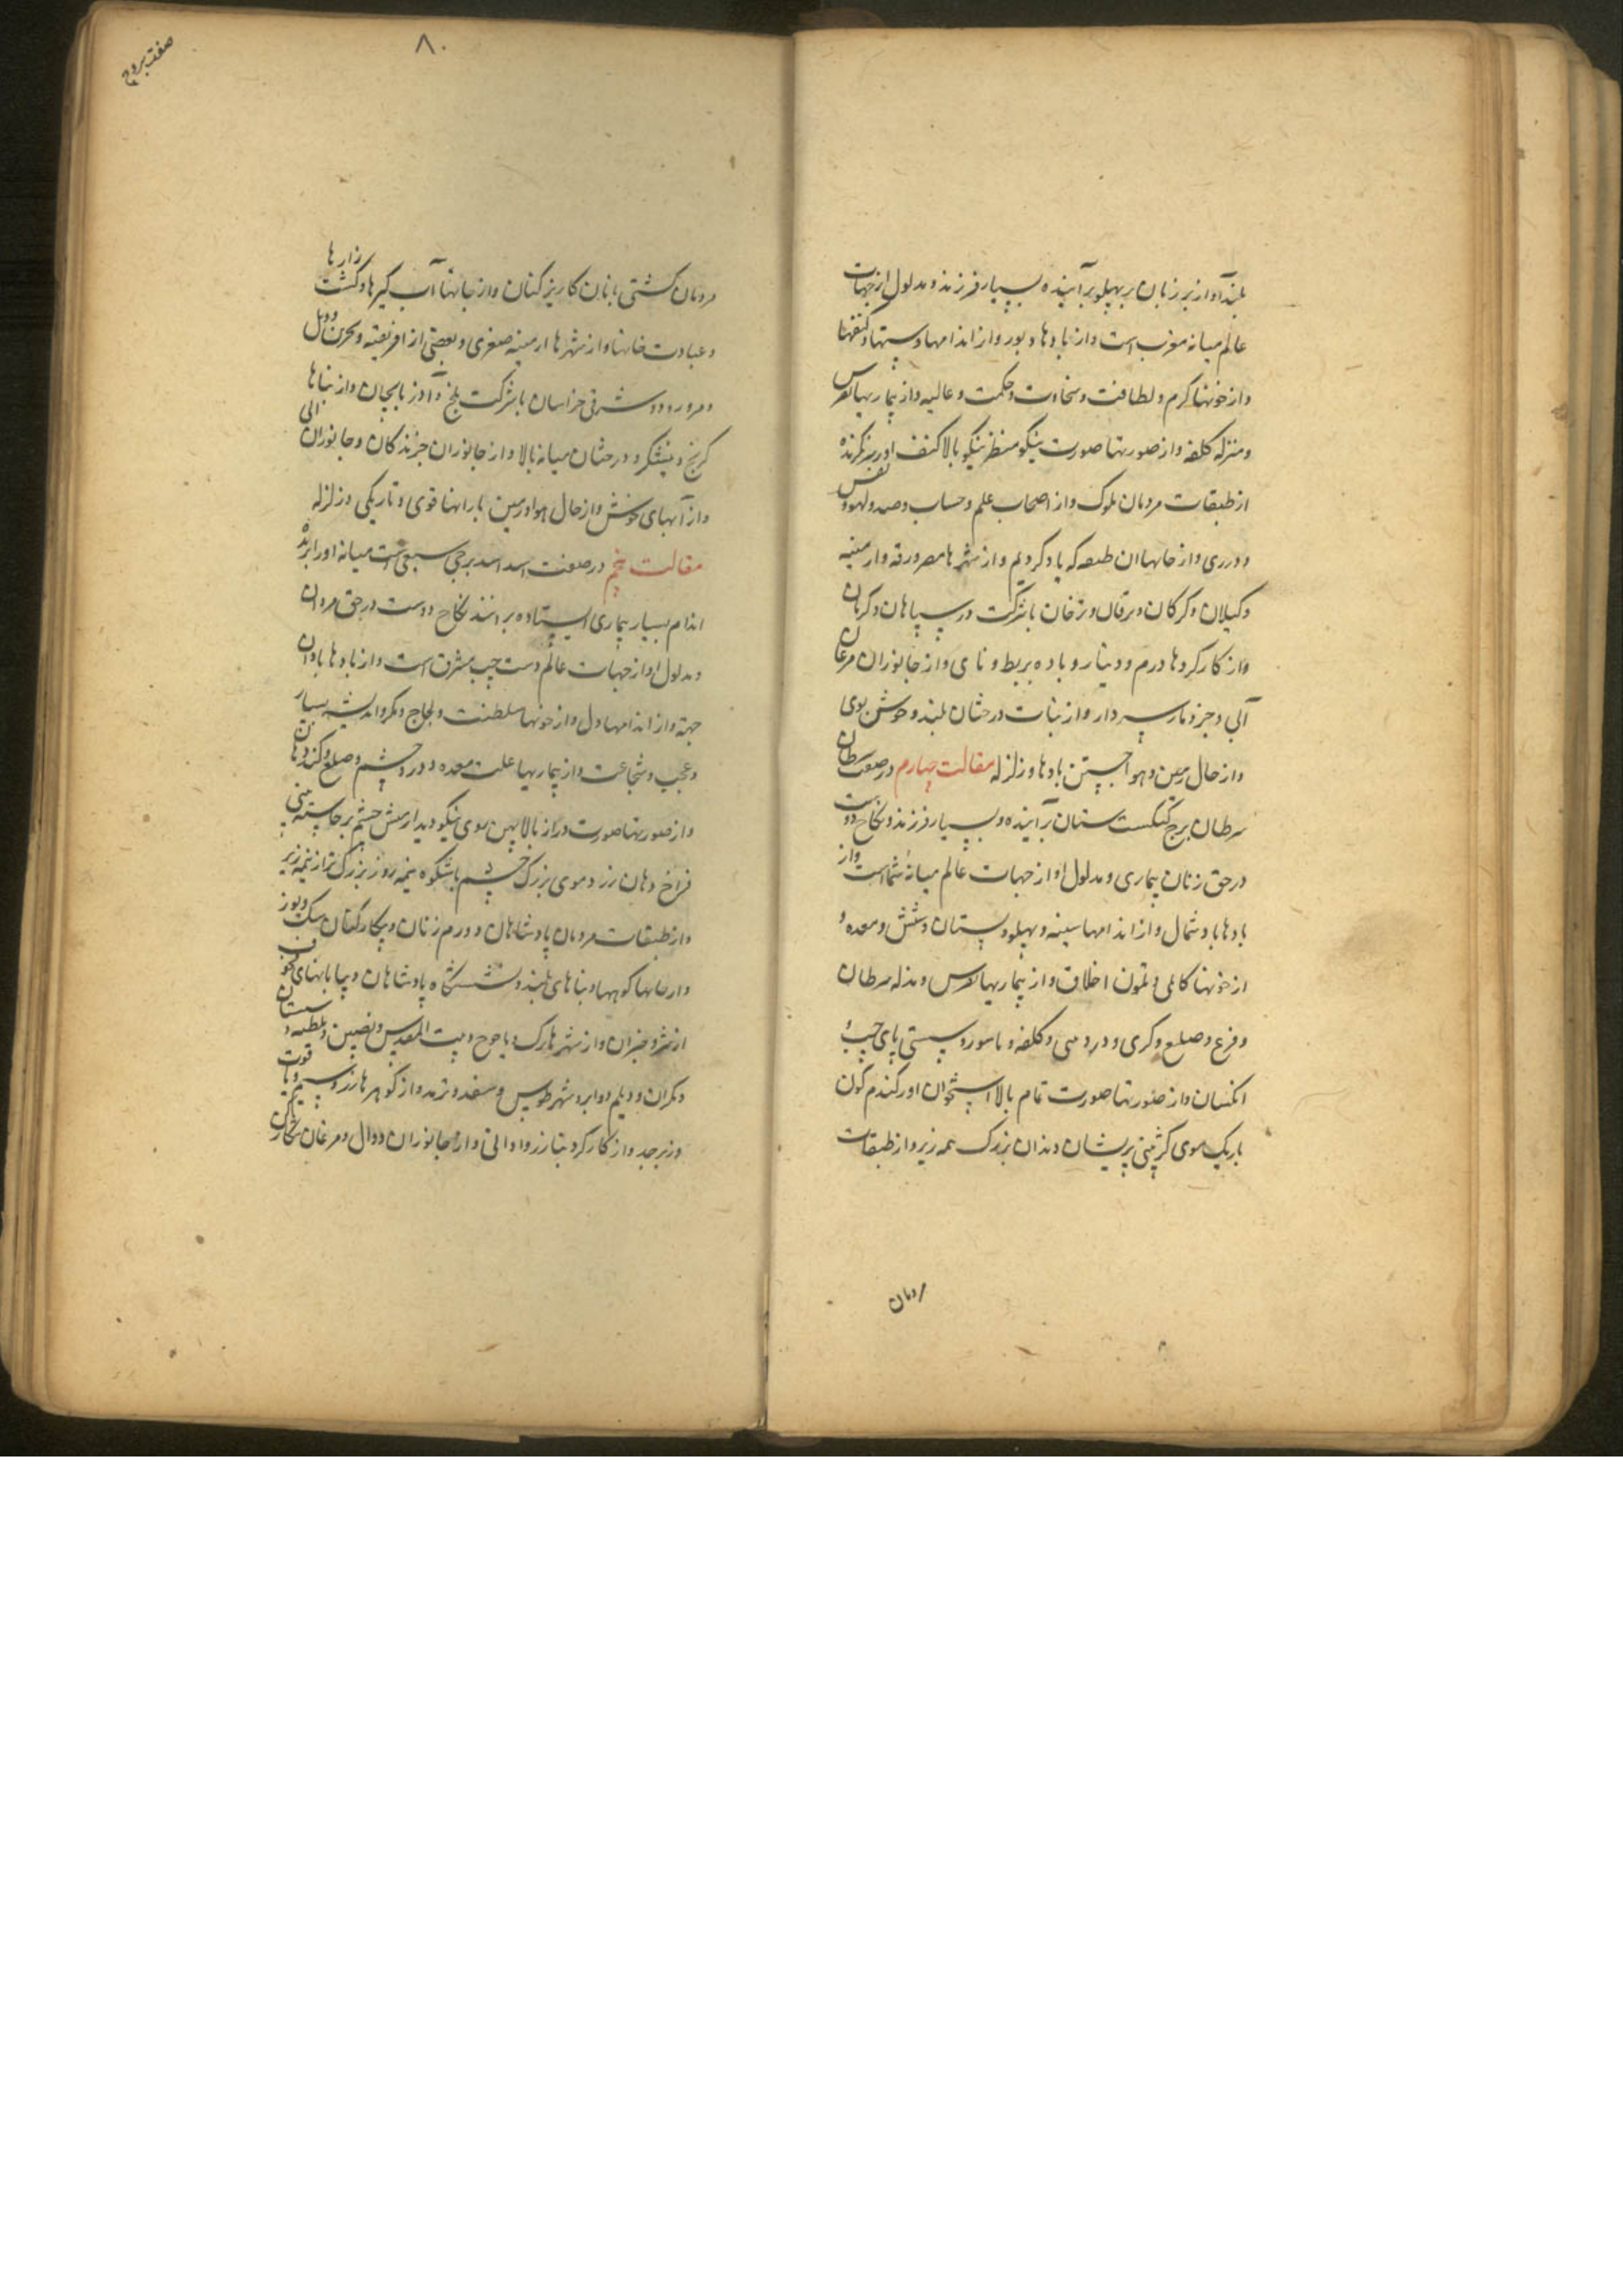 بلند آواز بر زبان بر پهلو برآینده بسیار فرزند و مدلول از جهات
عالم میانه مغرب است و از بادها دبور و از اندامها دستها و کتفها
و از خونها کرم و لطافت و سخاوت و حکمت و عالیه و از بیماریها نقرس
و منزله کلفه و از صورتها صورت نیکو منظر نیکو بالا کتف او بزرگ
از طبقات مردمان ملوک و از اصحاب علم و حساب و صید و لهو و
و درزی و از جایها ان که یاد کردیم و از شهرها مصر و رقه و ارمنیه
و کیلان و کرکان و برقان و بشرکت در سپاهان و کرمان
و از کارکردها درم و دینار و باده بربط و نای و از جانوران مرغان
آبی و مار سر دار و از نبات درختان بلند و خوش بوی
و از حال زمین و هوا جستن بادها و زلزله مقالت چهارم در صفت سرطان
سرطان برج کنکست ستان برآینده و بسیار فرزند و نکاح دوست
در حق زنان بیماری و مدلول او از جهات عالم میانهٔ شمال است و از
بادها باد شمال و از اندامها سینه و پهلو و پستان و شش و معده و
از خونها کاهلی و تلون اخلاق و از بیماریها نقرس و مذله سرطان
و فزع و صلع و کری و درد و کلفه و باسور و سستی پای چپ و
از صورتها صورت تمام بالا استخوان او کندم کون
باریک موی کژ بینی پریشان دندان بزرک نیمه زیر و از طبقات
مردمان
۸۰
صفت بروج
مردمان کشتی بانان کاریز کنان و از جایها آب کیرها و کشت زارها
و عبادت خانها و از شهرها ارمنیه صغری و بعضی از افریقیه و بحرین و دیبل
و مرورود و شرقی خراسان با شرکت بلخ و آذربایجان و از نباتها
کرنج و نیشکر و درختان میانه بالا و از جانوران خزندکان و جانوران آبی
و از آبهای خوش و از حال هوا و زمین بارانها قوی و تاریکی و زلزله
مقالت پنجم در صفت اسد اسد برجی سبعی است میانه اورا بریده
اندام بسیار بیماری ایستاده براننده نکاح دوست در حق مردان
و مدلول او از جهات عالم دست چپ مشرق است و از بادها بادان
جهة و از اندامها دل و از خونها سلطنت و لجاج و مکر و اندیشه بسیار
و عجب و شجاعت و از بیماریها علت معده و درد چشم و صلع و کند دهان
و از صورتها صورت دراز بالا پهن روی نیکو دیدار میش چشم برجسته بینی
فراخ دهان زرد موی بزرک چشم با شکوه نیمه روز بزرک تر از نیمه زیر
و از طبقات مردمان پادشاهان و درم زنان و پیکار کنان سک و یوز
و از جایها کوهها و بناهای بلند و نشستکاه پادشاهان و بیابانهای
و از شهرها ترک و یاجوج و بیت المقدس و نصیبین و ملطیه و سیستان
و مکران و دیلم و ابرشهر طوس و سغد و ترمد و از کوهرها زر و سیم و یاقوت
و زبرجد و از کارکردها زر و اوانی و از جانوران و مرغان شکاری